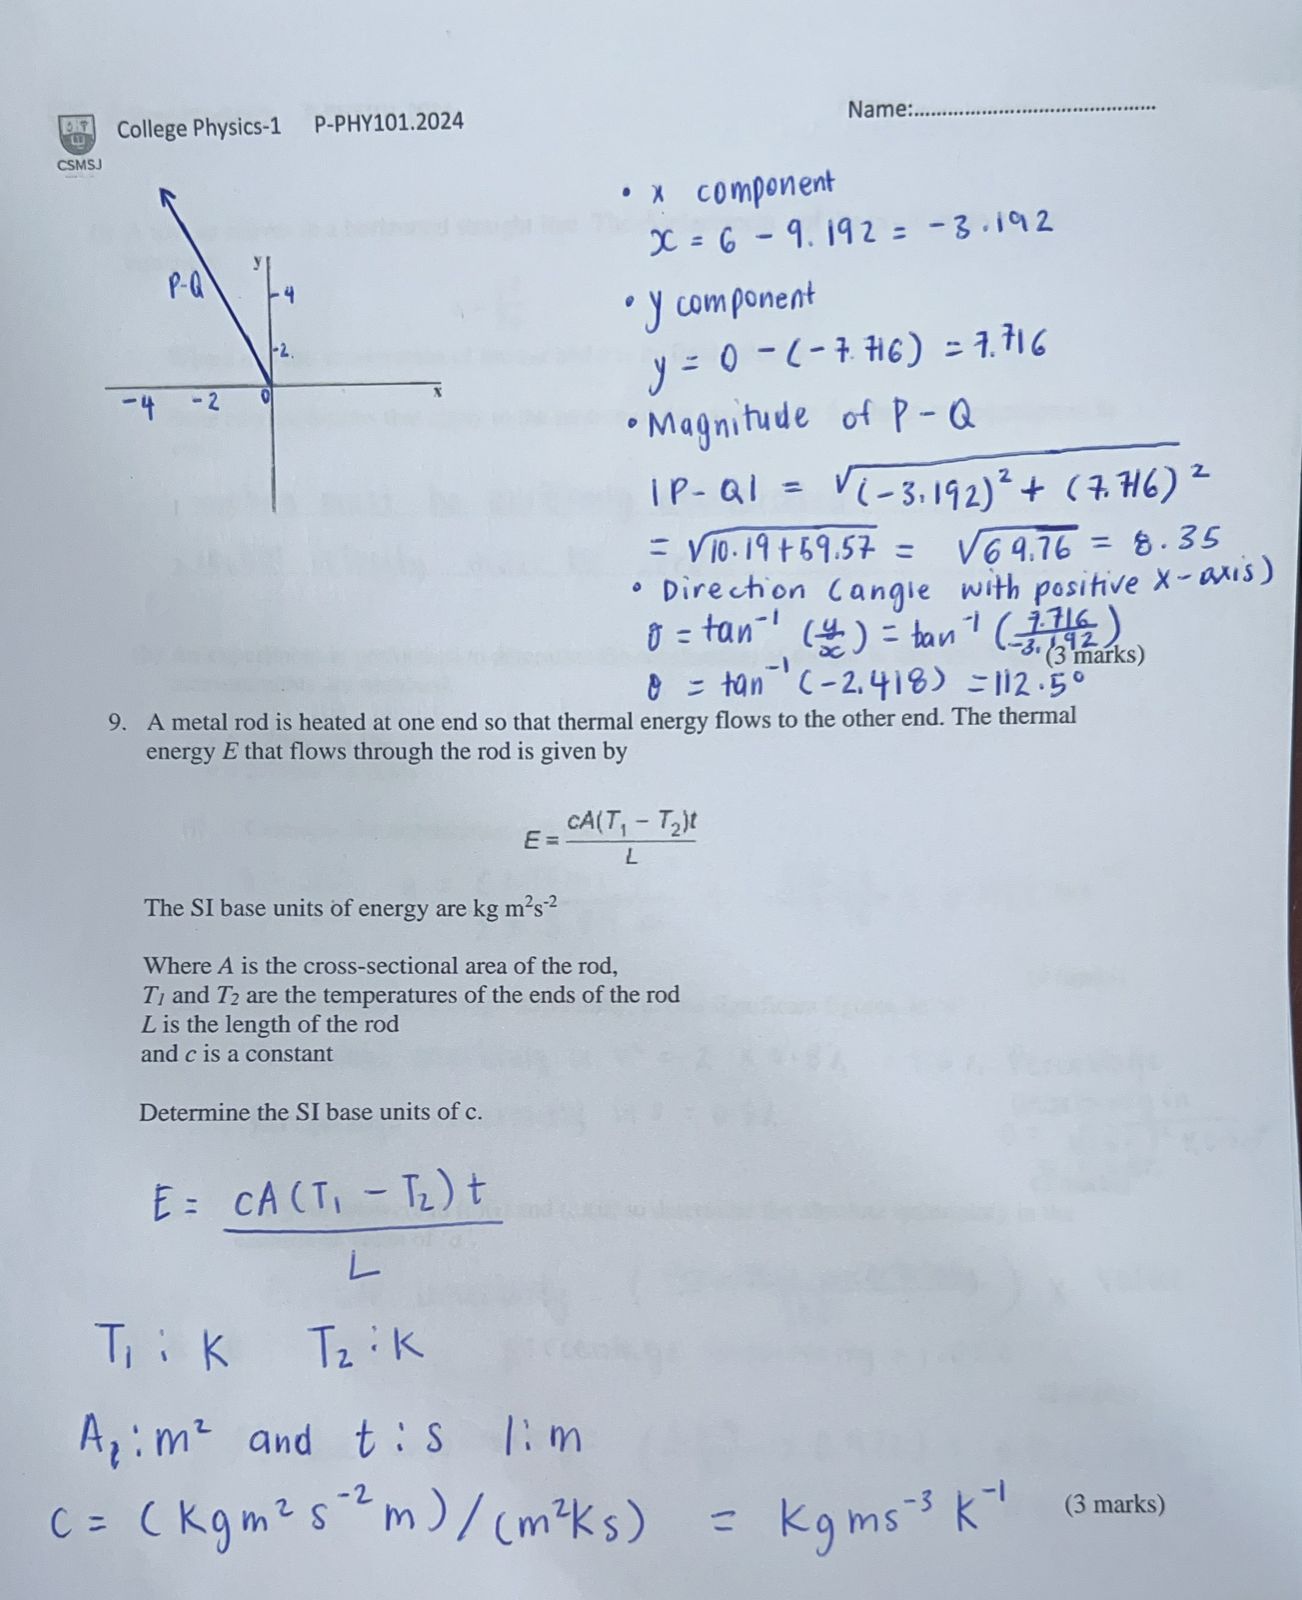 College Physics-1 P-PHY101.2024
Name:..........................................
CSMSJ
P-Q
y
4
2.
-4 -2 0 x
• x component
x = 6 - 9.192 = -3.192
• y component
y = 0 - (-7.716) = 7.716
• Magnitude of P - Q
|P-Q| = √(-3.192)² + (7.716)²
= √10.19+59.57 = √69.76 = 8.35
• Direction (angle with positive x-axis)
θ = tan⁻¹ (y/x) = tan⁻¹ (7.716/-3.192)
(3 marks)
θ = tan⁻¹ (-2.418) = 112.5°
9. A metal rod is heated at one end so that thermal energy flows to the other end. The thermal
energy E that flows through the rod is given by
E = cA(T₁ - T₂)t / L
The SI base units of energy are kg m²s⁻²
Where A is the cross-sectional area of the rod,
T₁ and T₂ are the temperatures of the ends of the rod
L is the length of the rod
and c is a constant
Determine the SI base units of c.
E = cA(T₁ - T₂)t / L
T₁ : K T₂ : K
A : m² and t : s l : m
C = (Kgm² s⁻² m)/(m²Ks) = Kgms⁻³ K⁻¹ (3 marks)